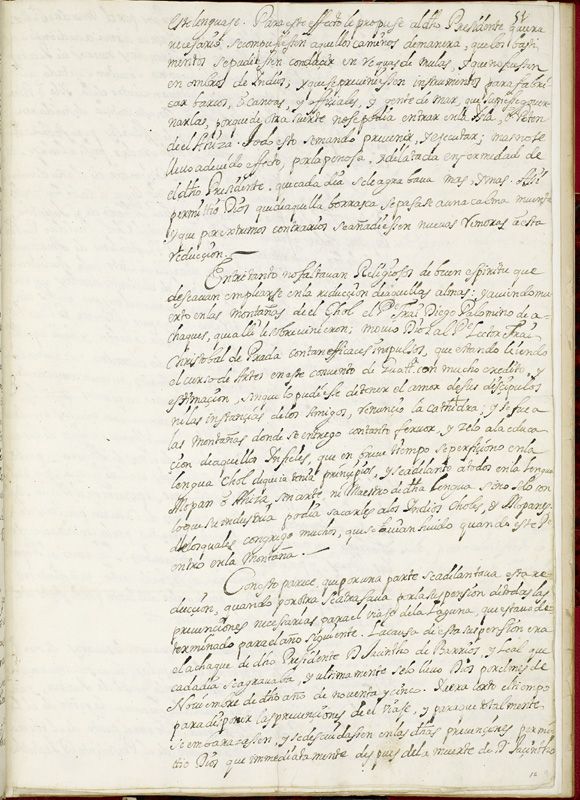 este lenguase. Para este effecto le propuse al dho Presidente quera
necesario, se compusiessen aquellos caminos demanera, que los basti
mentos se pudiessen conducir en requas de mulas, y que no fuessen
en ombros de Indios, y que se previniessen instrumentos para fabri
car barcos, ò canoas, y officiales, y gente de mar, que supiesse gover
narlas, porque de otra suerte no se podia entrar en la Isla, ò Peten
de el Ytza. Todo esto se mando prevenir, y executar; mas no se
llevo a devido effecto, por la penosa, y dilatada enfermedad de
el dho Presidente, que cada dia se le agravava mas, y mas. Assi
permittio Dios que de aquella borrasca se passase a una calma muerta
y que por extremos contrarios se añadiessen nuevas remoras à esta
reduccion.
Entretanto no faltavan Religiosos de buen espiritu que
deseavan emplearse en la reduccion de aquellas almas; y aviendo mu
erto en las montañas de el Chol el Pe. Frai Diego Palomino de a-
chaques, que alli le sobrevinieron; movio Dios al Pe. Lector Frai
Christobal de Prada con tan efficaces impulsos, que estando leiendo
el curso de Artes en este convento de Guatt. con mucho credito, y
estimacion, sin que lo pudiesse detener el amor de sus discipulos
ni las instancias de los Amigos, renuncio la cathedra, y se fue a
las Montañas donde se entrego con tanto fervor, y zelo a la educa
cion de aquellos Infieles, que en breve tiempo se perficiono en la
lengua Chol de que ia tenia principios, y se adelanto a todos en la lengua
Mopan ò Ahitza, sin arte, ni Maestro de dha lengua sino solo con
lo que su industria podia sacarles a los Indios Choles, y Mopanes,
de los quales congrego muchos, que se havian huido quando este Pe.
entro en la Montaña.
Con esto parece, que por una parte se adelantava esta re-
duccion, quando por otra se atrasava por la suspension de todas las
prevenciones necesarias para el viaje de la Laguna, que estava de
terminado para el año siguiente. La causa de esta suspension era
el achaque de dho Presidente D. Jacintho de Barrios, y Leal que
cada dia se agravaba, y ultimamente se lo llevo Dios por el mes de
Noviembre de dho año de noventa y cinco. Ya era corto el tiempo
para disponer las prevenciones de el viaje, y para que totalmente
se embarazasen, y se descuidassen en las dhas prevenciones permi
ttio Dios que immediatamente despues de la muerte de D. Jacintho